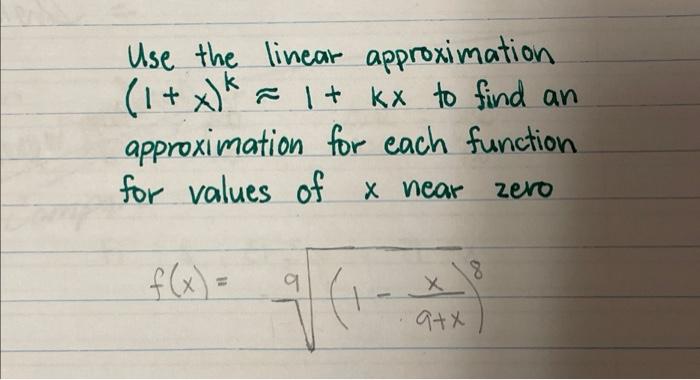 Use the linear approximation
(1 + x)^k ≈ 1 + kx to find an
approximation for each function
for values of x near zero
f(x) = \sqrt[9]{(1 - \frac{x}{9+x})^8}